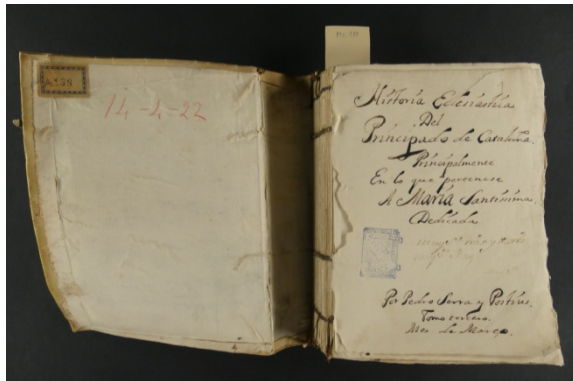 14-4-22
Historia Eclesiastica
Del
Principado de Cataluña.
Principalmente
En lo que pertenese
A María Santissima
Dedicada
Por Pedro Serra y Postius.
Tomo tercero.
Mes de Março.